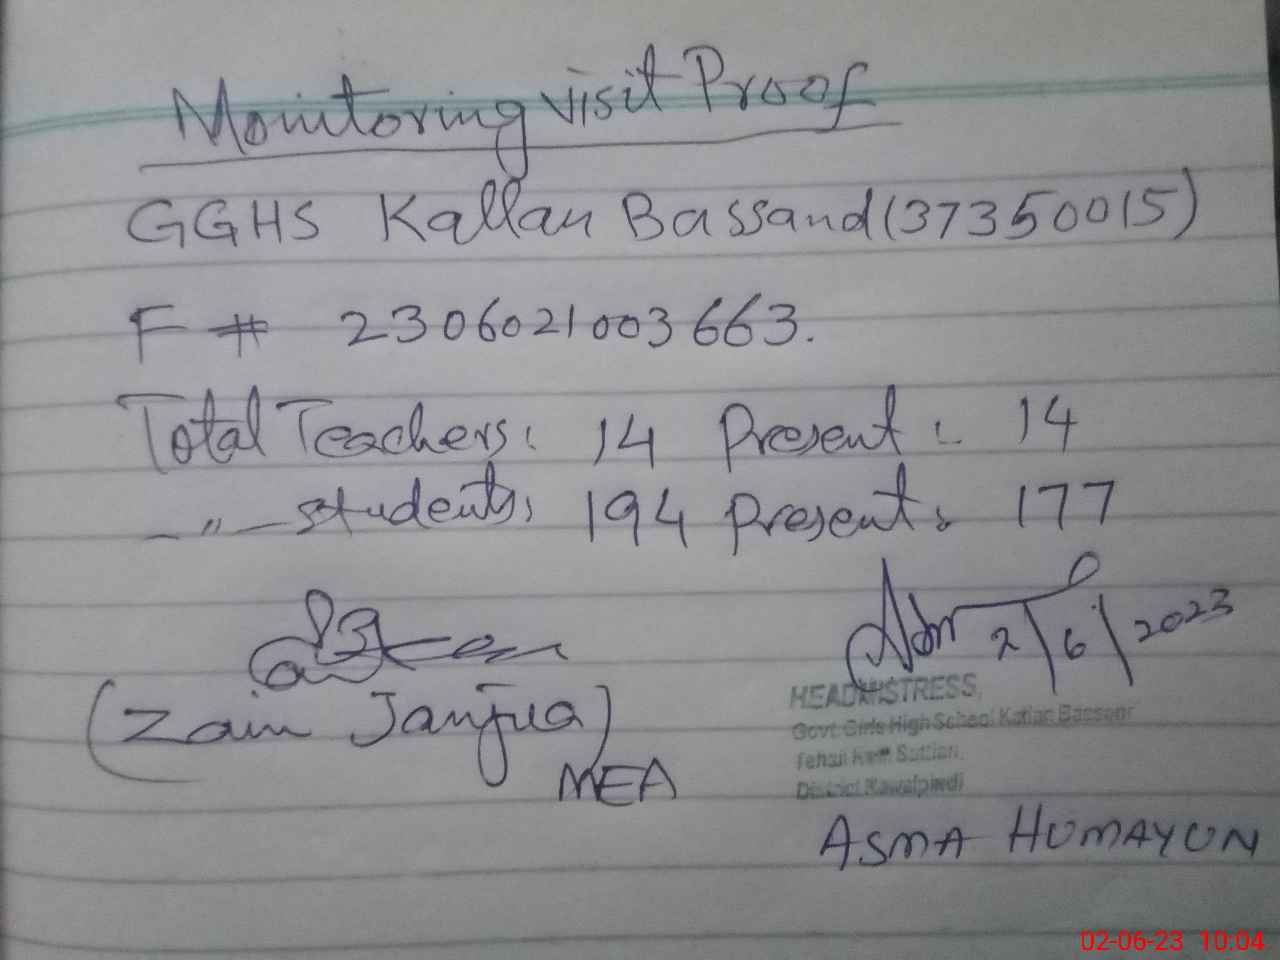 Monitoring visit Proof
GGHS Kallan Bassand (37350015)
F # 2306021003663.
Total Teachers: 14 Present: 14
—〃— students: 194 Present: 177
2/6/2023
(Zain Janjua)
MEA
HEADMISTRESS,
Govt. Girls High School Kallan Bassand
Tehsil Kotli Sattian,
District Rawalpindi
ASMA HUMAYUN
02-06-23 10:04